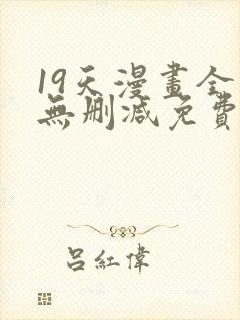 19天漫畫全
無刪減免費
呂紅偉